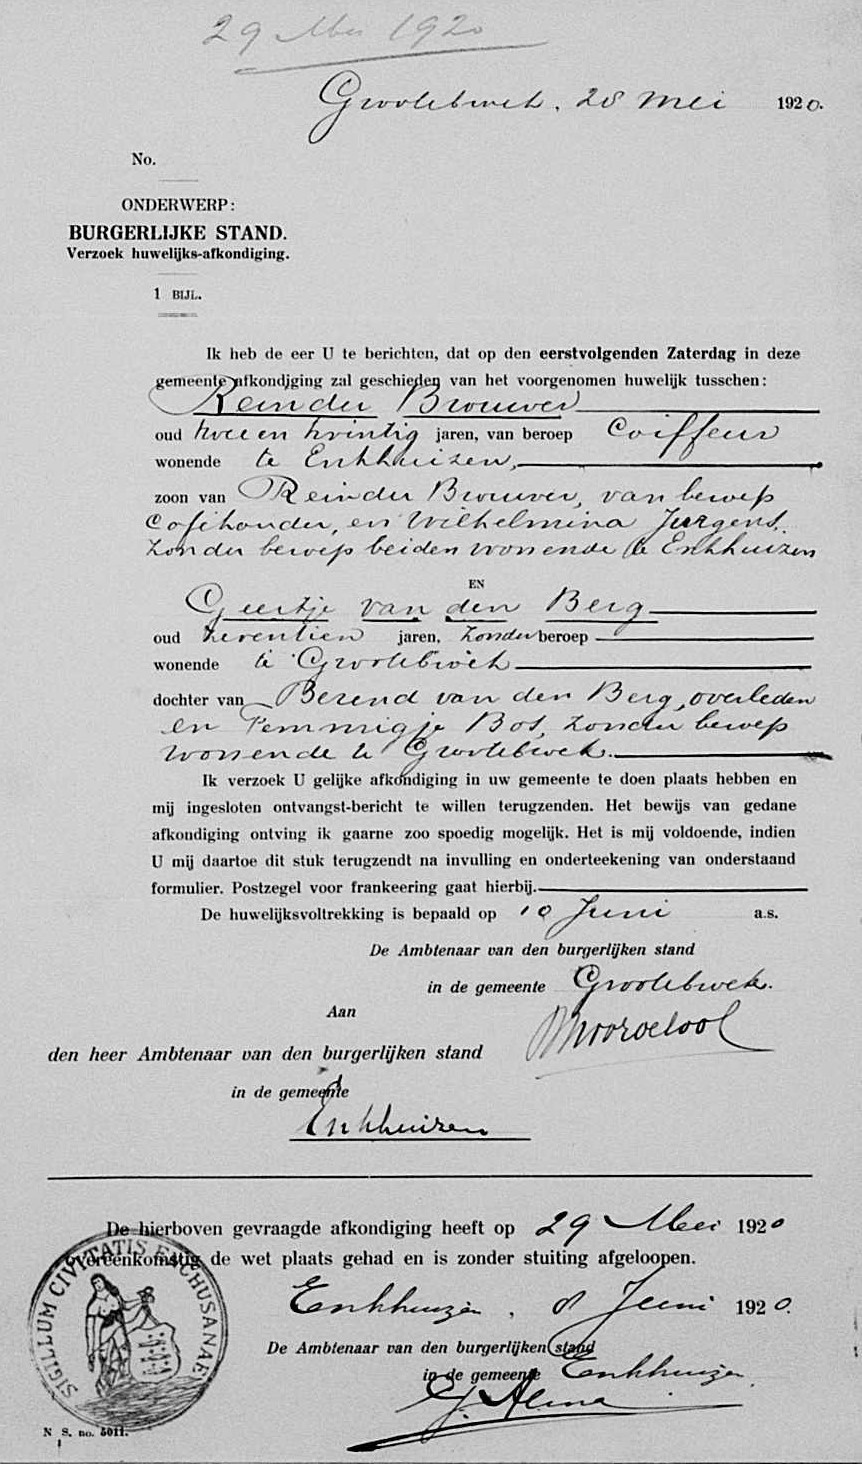 29 Mei 1920
Grootebroek, 28 Mei 1920.
No.
ONDERWERP:
BURGERLIJKE STAND.
Verzoek huwelijks-afkondiging.
1 BIJL.
Ik heb de eer U te berichten, dat op den eerstvolgenden Zaterdag in deze
gemeente afkondiging zal geschieden van het voorgenomen huwelijk tusschen:
Reinder Brouwer
oud twee en twintig jaren, van beroep Coiffeur
wonende te Enkhuizen,
zoon van Reinder Brouwer, van beroep
Cofihouder, en Wilhelmina Jurgens,
zonder beroep beiden wonende te Enkhuizen
EN
Geertje van den Berg
oud zeventien jaren, zonder beroep
wonende te Grootebroek
dochter van Berend van den Berg, overleden
en Femmigje Bos, zonder beroep
wonende te Grootebroek.
Ik verzoek U gelijke afkondiging in uw gemeente te doen plaats hebben en
mij ingesloten ontvangst-bericht te willen terugzenden. Het bewijs van gedane
afkondiging ontving ik gaarne zoo spoedig mogelijk. Het is mij voldoende, indien
U mij daartoe dit stuk terugzendt na invulling en onderteekening van onderstaand
formulier. Postzegel voor frankeering gaat hierbij.
De huwelijksvoltrekking is bepaald op 10 Juni a.s.
De Ambtenaar van den burgerlijken stand
in de gemeente Grootebroek.
Aan
den heer Ambtenaar van den burgerlijken stand
in de gemeente
Enkhuizen
De hierboven gevraagde afkondiging heeft op 29 Mei 1920
overeenkomstig de wet plaats gehad en is zonder stuiting afgeloopen.
SIGILLUM CIVITATIS ENCHUSANAE
Enkhuizen, 8 Juni 1920.
De Ambtenaar van den burgerlijken stand
in de gemeente Enkhuizen
N. S. no. 5011.